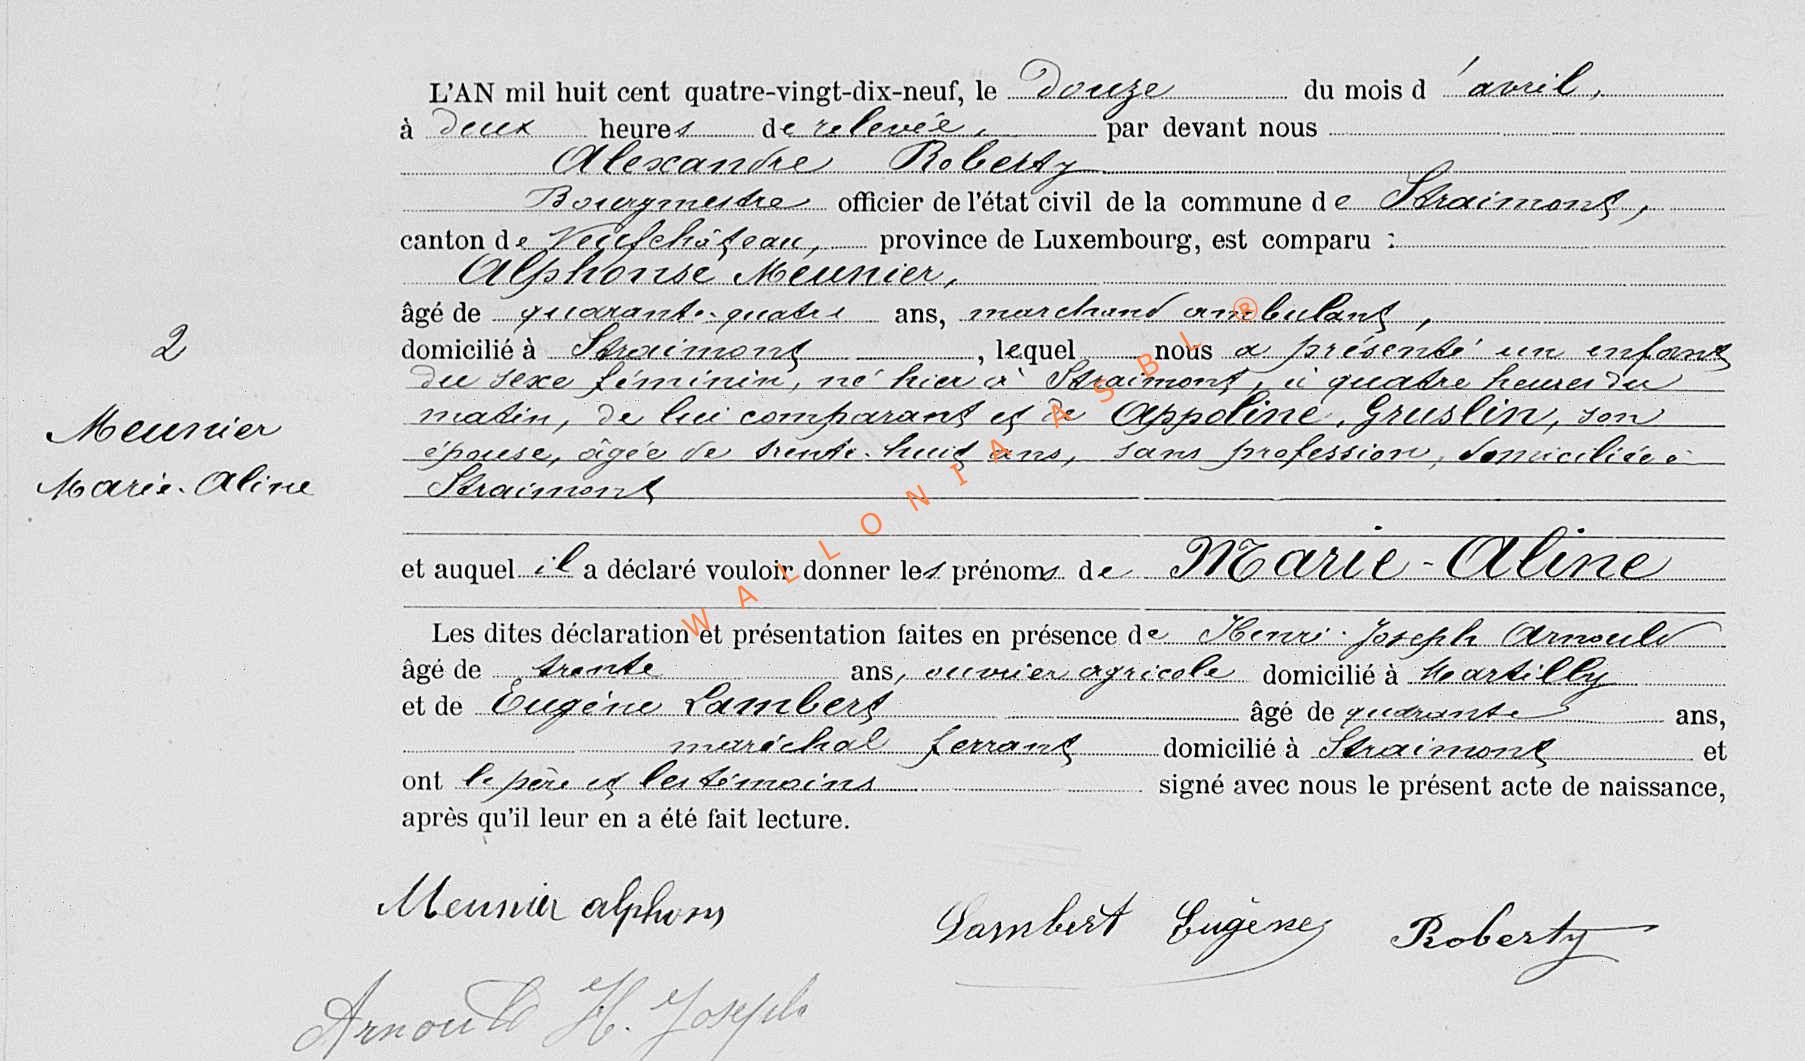 L'AN mil huit cent quatre-vingt-dix-neuf, le douze du mois d'avril,
à deux heures de relevée, par devant nous
Alexandre Roberty
Bourgmestre officier de l'état civil de la commune de Straimont,
canton de Neufchâteau, province de Luxembourg, est comparu :
Alphonse Meunier,
âgé de quarante-quatre ans, marchand ambulant,
domicilié à Straimont, lequel nous a présenté un enfant
du sexe féminin, né hier à Straimont, à quatre heures du
matin, de lui comparant et de Appoline Gruslin, son
épouse, âgée de trente-huit ans, sans profession, domiciliée à
Straimont
2
Meunier
Marie-Aline
et auquel il a déclaré vouloir donner les prénoms de Marie-Aline
Les dites déclaration et présentation faites en présence de Henri-Joseph Arnould
âgé de trente ans, ouvrier agricole domicilié à Martilly
et de Eugène Lambert âgé de quarante ans,
maréchal ferrant domicilié à Straimont et
ont le père et les témoins signé avec nous le présent acte de naissance,
après qu'il leur en a été fait lecture.
Meunier alphons
Lambert Eugène
Roberty
Arnould H. Joseph
WALLONIA ASBL ®